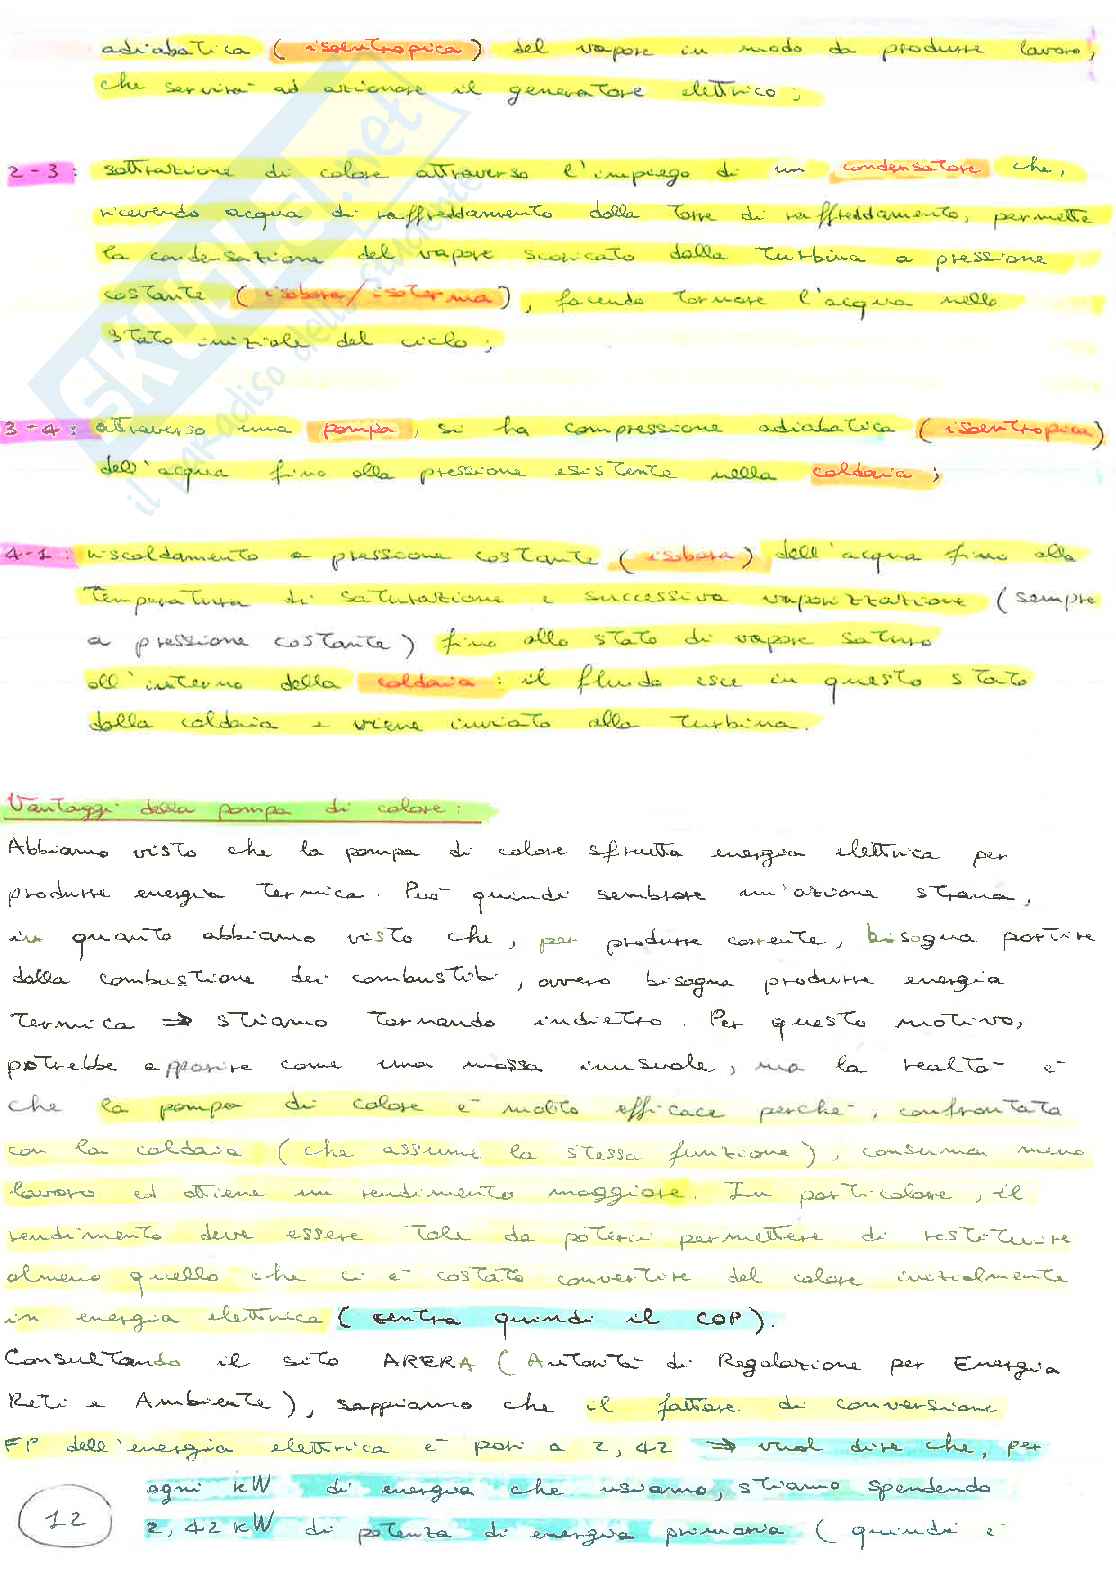 adiabatica (isoentropica) del vapore in modo da produrre lavoro,
che servirà ad azionare il generatore elettrico;
2-3: sottrazione di calore attraverso l'impiego di un condensatore che,
ricevendo acqua di raffreddamento dalla torre di raffreddamento, permette
la condensazione del vapore scaricato dalla turbina a pressione
costante (isobara/isoterma), facendo tornare l'acqua nello
stato iniziale del ciclo;
3-4: attraverso una pompa, si ha compressione adiabatica (isoentropica)
dell'acqua fino alla pressione esistente nella caldaia;
4-1: riscaldamento a pressione costante (isobara) dell'acqua fino alla
temperatura di saturazione e successiva vaporizzazione (sempre
a pressione costante) fino allo stato di vapore saturo
all'interno della caldaia: il fluido esce in questo stato
dalla caldaia e viene inviato alla turbina.
Vantaggi della pompa di calore:
Abbiamo visto che la pompa di calore sfrutta energia elettrica per
produrre energia termica. Può quindi sembrare un'azione strana,
in quanto abbiamo visto che, per produrre corrente, bisogna partire
dalla combustione dei combustib, ovvero bisogna produrre energia
termica ⇒ stiamo tornando indietro. Per questo motivo,
potrebbe apparire come una mossa inusuale, ma la realtà è
che la pompa di calore è molto efficace perchè, confrontata
con la caldaia (che assume la stessa funzione), consuma meno
lavoro ed ottiene un rendimento maggiore. In particolare, il
rendimento deve essere tale da poterci permettere di restituire
almeno quello che ci è costato convertire del calore inizialmente
in energia elettrica (centra quindi il COP).
Consultando il sito ARERA (Autorità di Regolazione per Energia
Reti e Ambiente), sappiamo che il fattore di conversione
FP dell'energia elettrica è pari a 2,42 ⇒ vuol dire che, per
ogni kW di energia che usiamo, stiamo spendendo
2,42 kW di potenza di energia primaria (quindi è
12
skuola.net
il paradiso dello studente